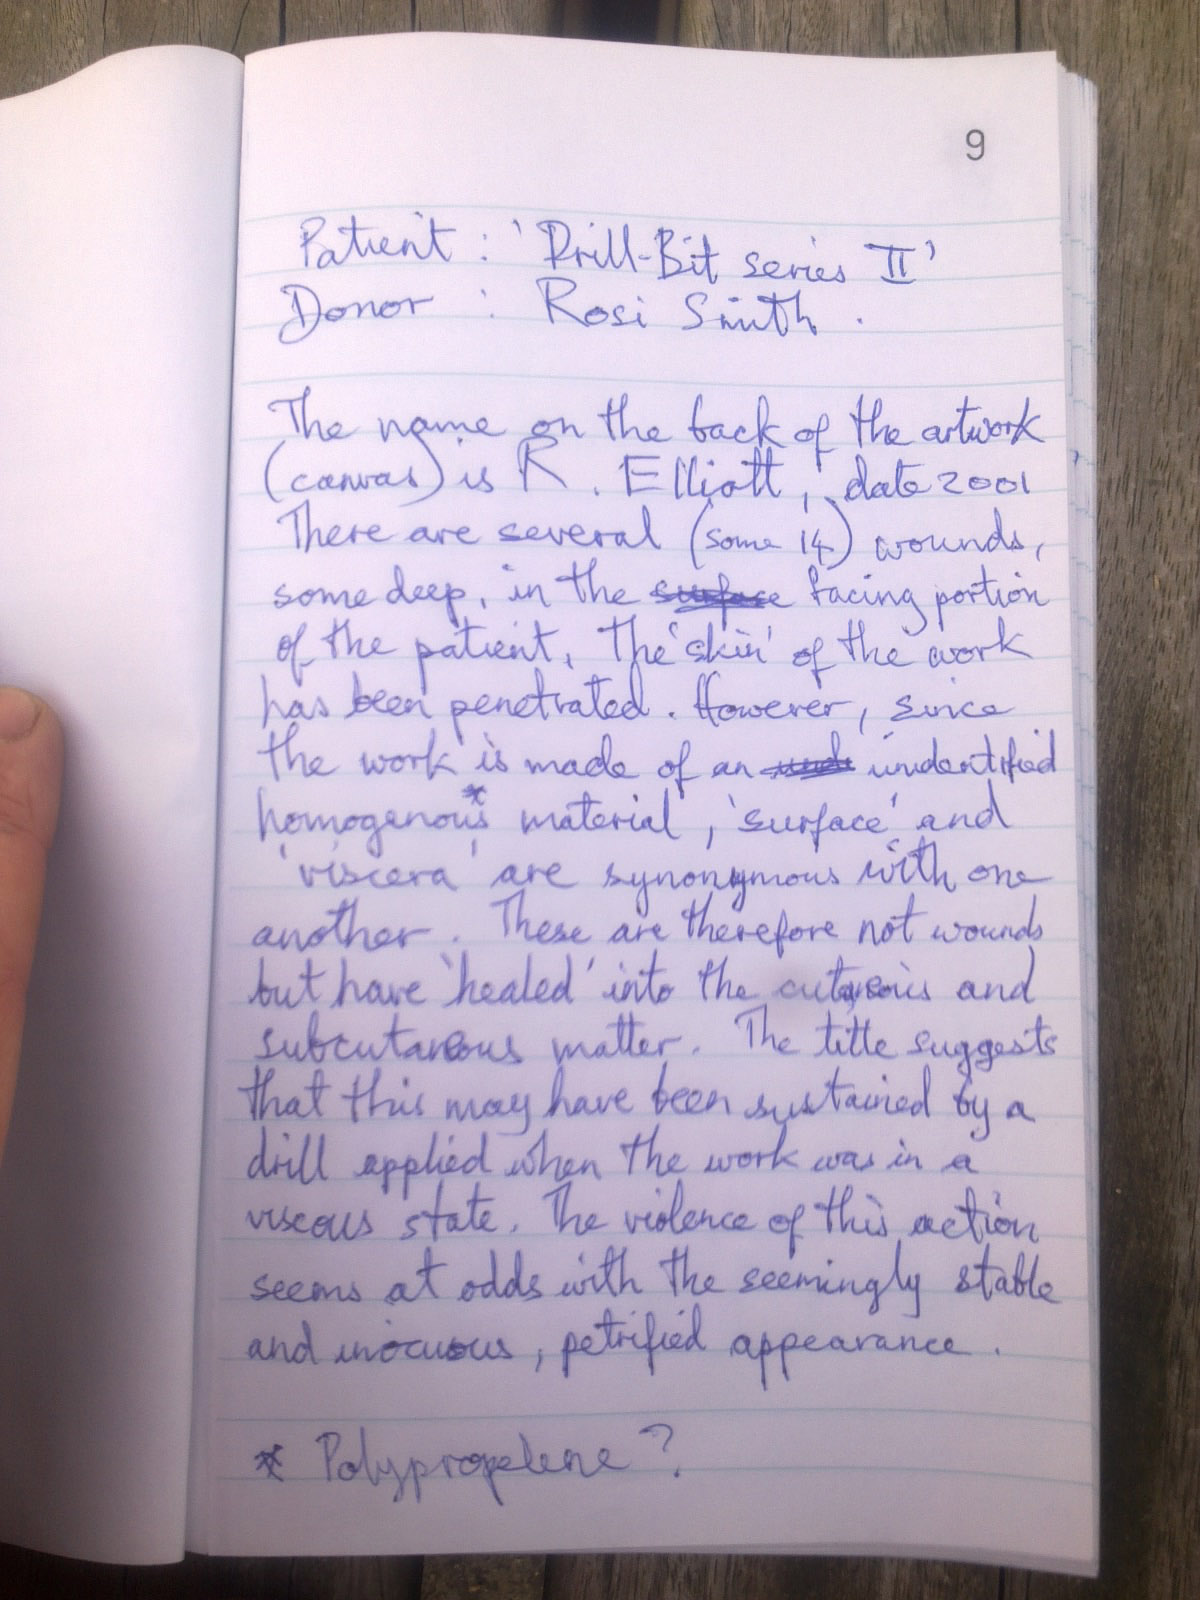 9
Patient : 'Drill-Bit series II'
Donor : Rosi Smith .
The name on the back of the artwork
(canvas) is R. Elliott, date 2001
There are several (some 14) wounds,
some deep, in the surface facing portion
of the patient. The 'skin' of the work
has been penetrated. However, since
the work is made of an unidentified
homogenous* material, 'surface' and
'viscera' are synonymous with one
another. These are therefore not wounds
but have 'healed' into the cutaneous and
subcutaneous matter. The title suggests
that this may have been sustained by a
drill applied when the work was in a
viscous state. The violence of this action
seems at odds with the seemingly stable
and inocuous, petrified appearance.
* Polypropelene?